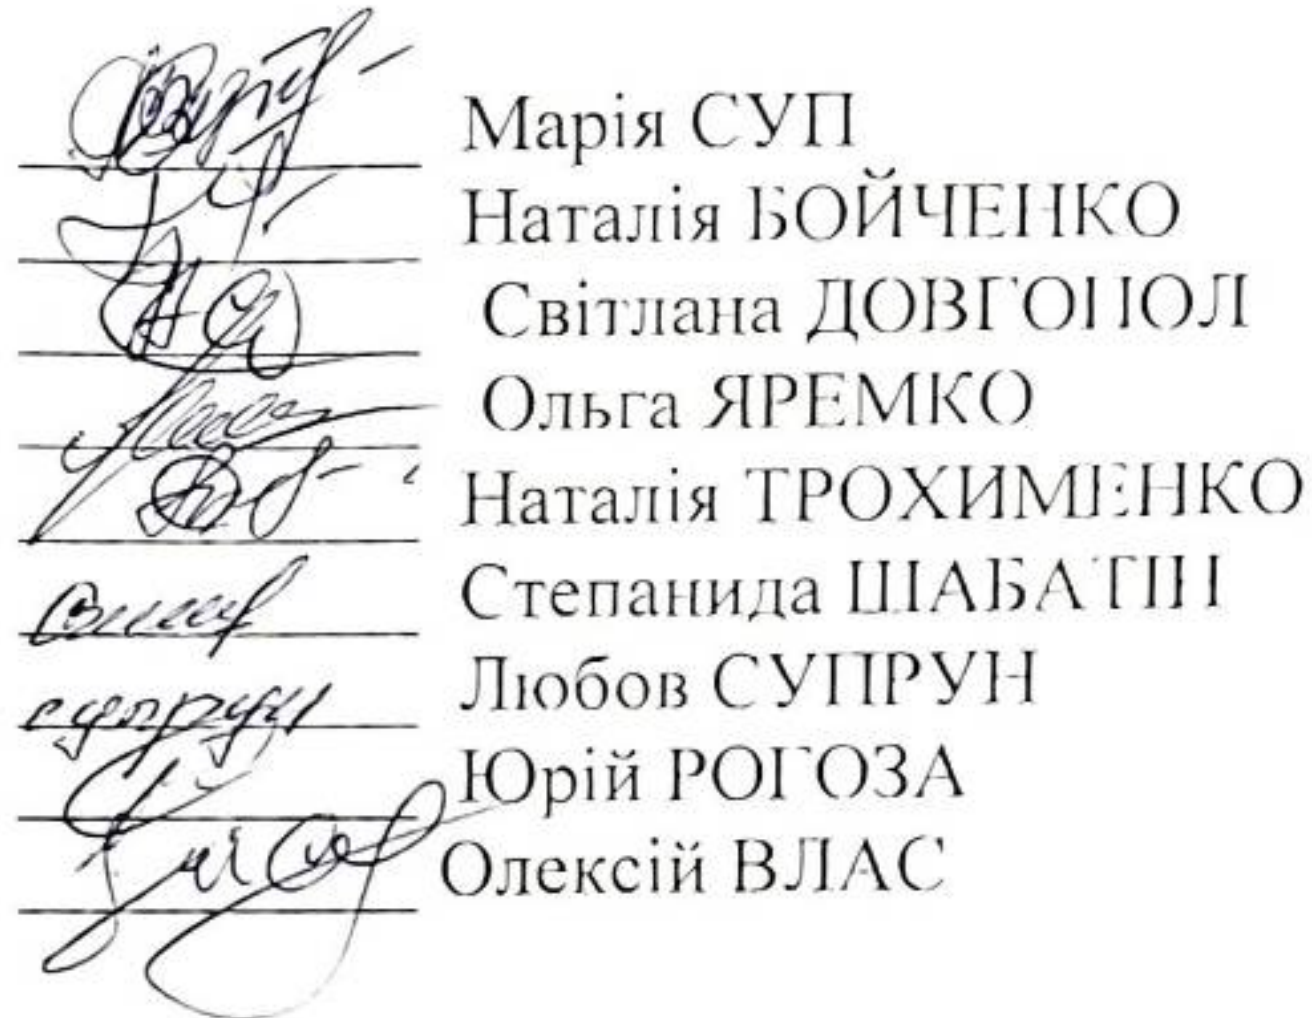 Марія СУП
Наталія БОЙЧЕНКО
Світлана ДОВГОПОЛ
Ольга ЯРЕМКО
Наталія ТРОХИМЕНКО
Степанида ШАБАТІН
Любов СУПРУН
супрун
Юрій РОГОЗА
Олексій ВЛАС